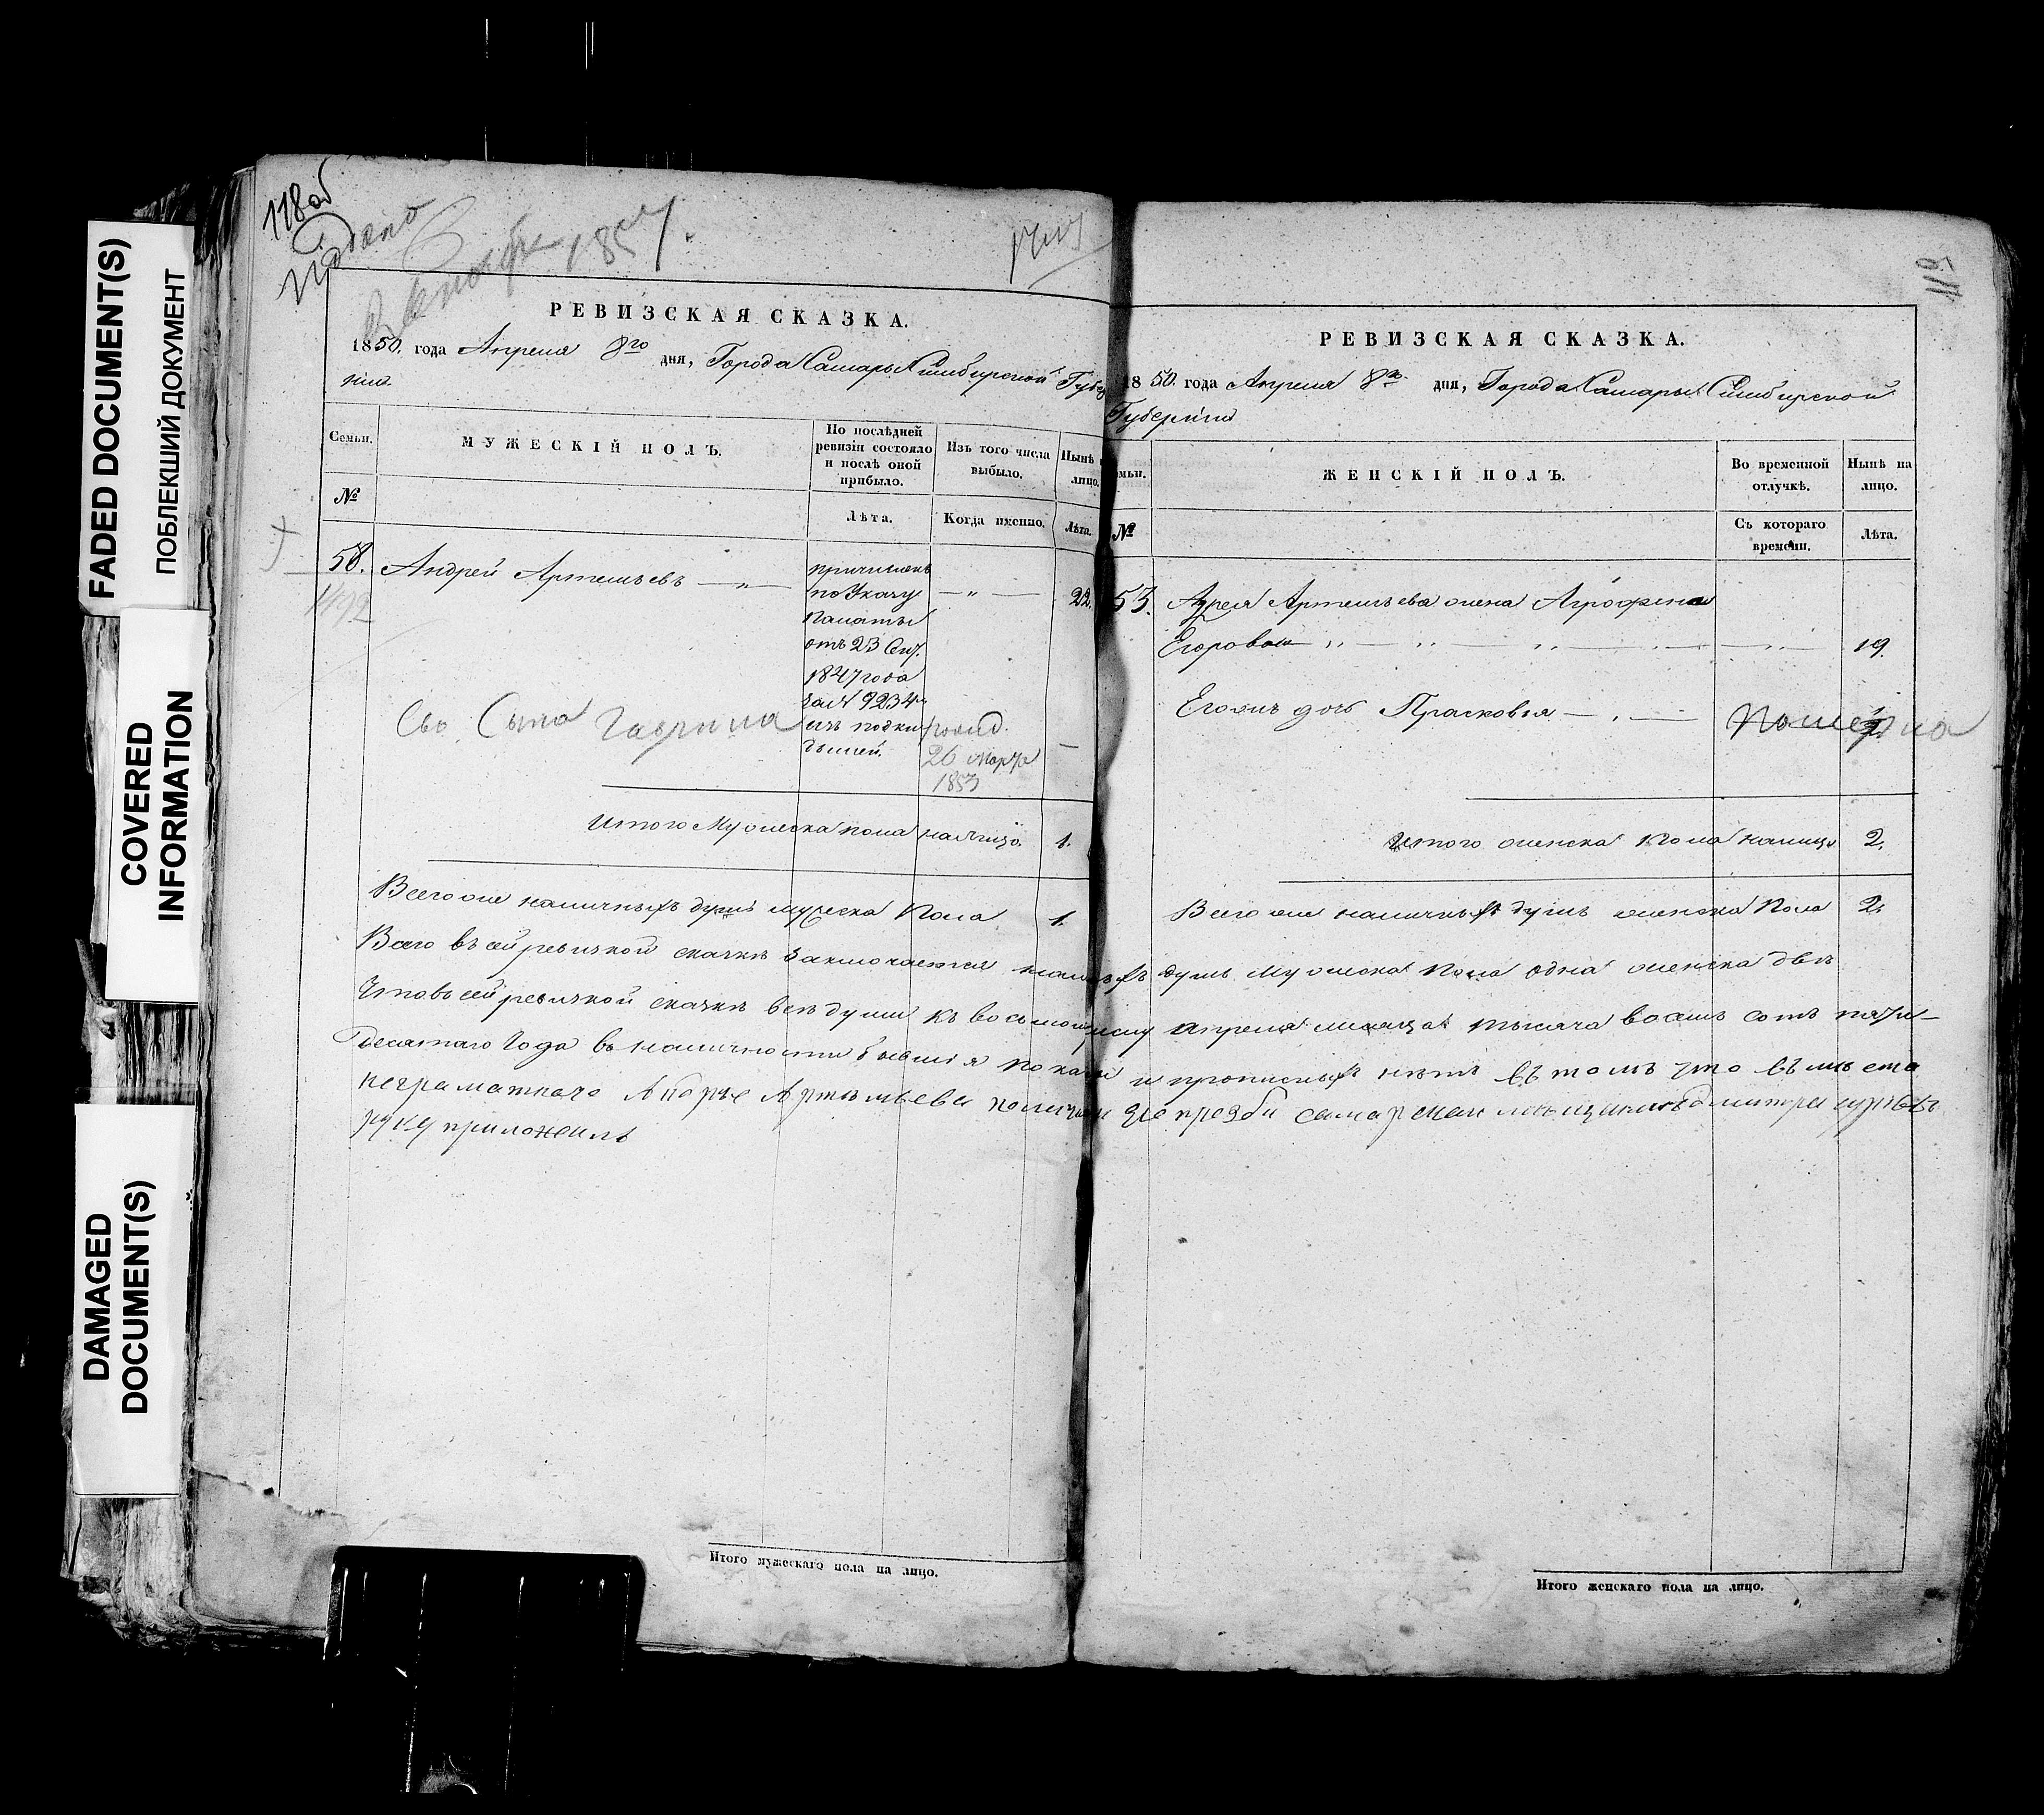 FADED DOCUMENT(S)
ПОБЛЕКШИЙ ДОКУМЕНТ
COVERED
INFORMATION
DAMAGED
DOCUMENT(S)
118об
Подано
1857.
РЕВИЗСКАЯ СКАЗКА.
1850. года Апреля 8го дня, Города Самары Симбирской Губер
нии.
Семьи.
МУЖЕСКІЙ ПОЛЪ.
По послѣдней
ревизіи состояло
и послѣ оной
прибыло.
Изъ того числа
выбыло.
Нынѣ
лицо.
№
Лѣта.
Когда именно.
Лѣта.
58. Андрей Артемьевъ — „ —
причисленъ
по Указу
Палаты
отъ 23 Сен.
1847 года
за № 9234
изъ подки
дышей.
— „ —
22.
1492
Его Сына Гаврила
26 Марта
1853
Итого Мужеска пола налицо. 1.
Всего же наличныхъ душъ мужеска Пола 1.
119
РЕВИЗСКАЯ СКАЗКА.
1850. года Апреля 8го дня, Города Самары Симбирской
Губернии
мьи.
ЖЕНСКІЙ ПОЛЪ.
Во временной
отлучкѣ.
Нынѣ на
лицо.
№
Съ котораго
времени.
Лѣта.
53. Андрея Артемьева жена Агрофена
Егорова — „ — „ — „ — „ — „ — 19.
Его жъ дочь Прасковья — „ — померла
Итого женска Пола налицо 2.
Всего же наличныхъ душъ женска Пола 2.
Всего въ сей ревизкой сказке Заключается наличныхъ душъ мужеска пола одна женска две
Что въ сей ревизкой сказке все души къ восьмому числу апреля месяца тысяча восемь сотъ пяти-
десятаго Года въ наличности бывшія показаны и прописныхъ нетъ въ томъ что вместо
неграматнаго Андрея Артемьева по личной его прозбе самарской мещанинъ Дмитрей
руку приложилъ
Итого мужескаго пола на лицо.
Итого женскаго пола на лицо.